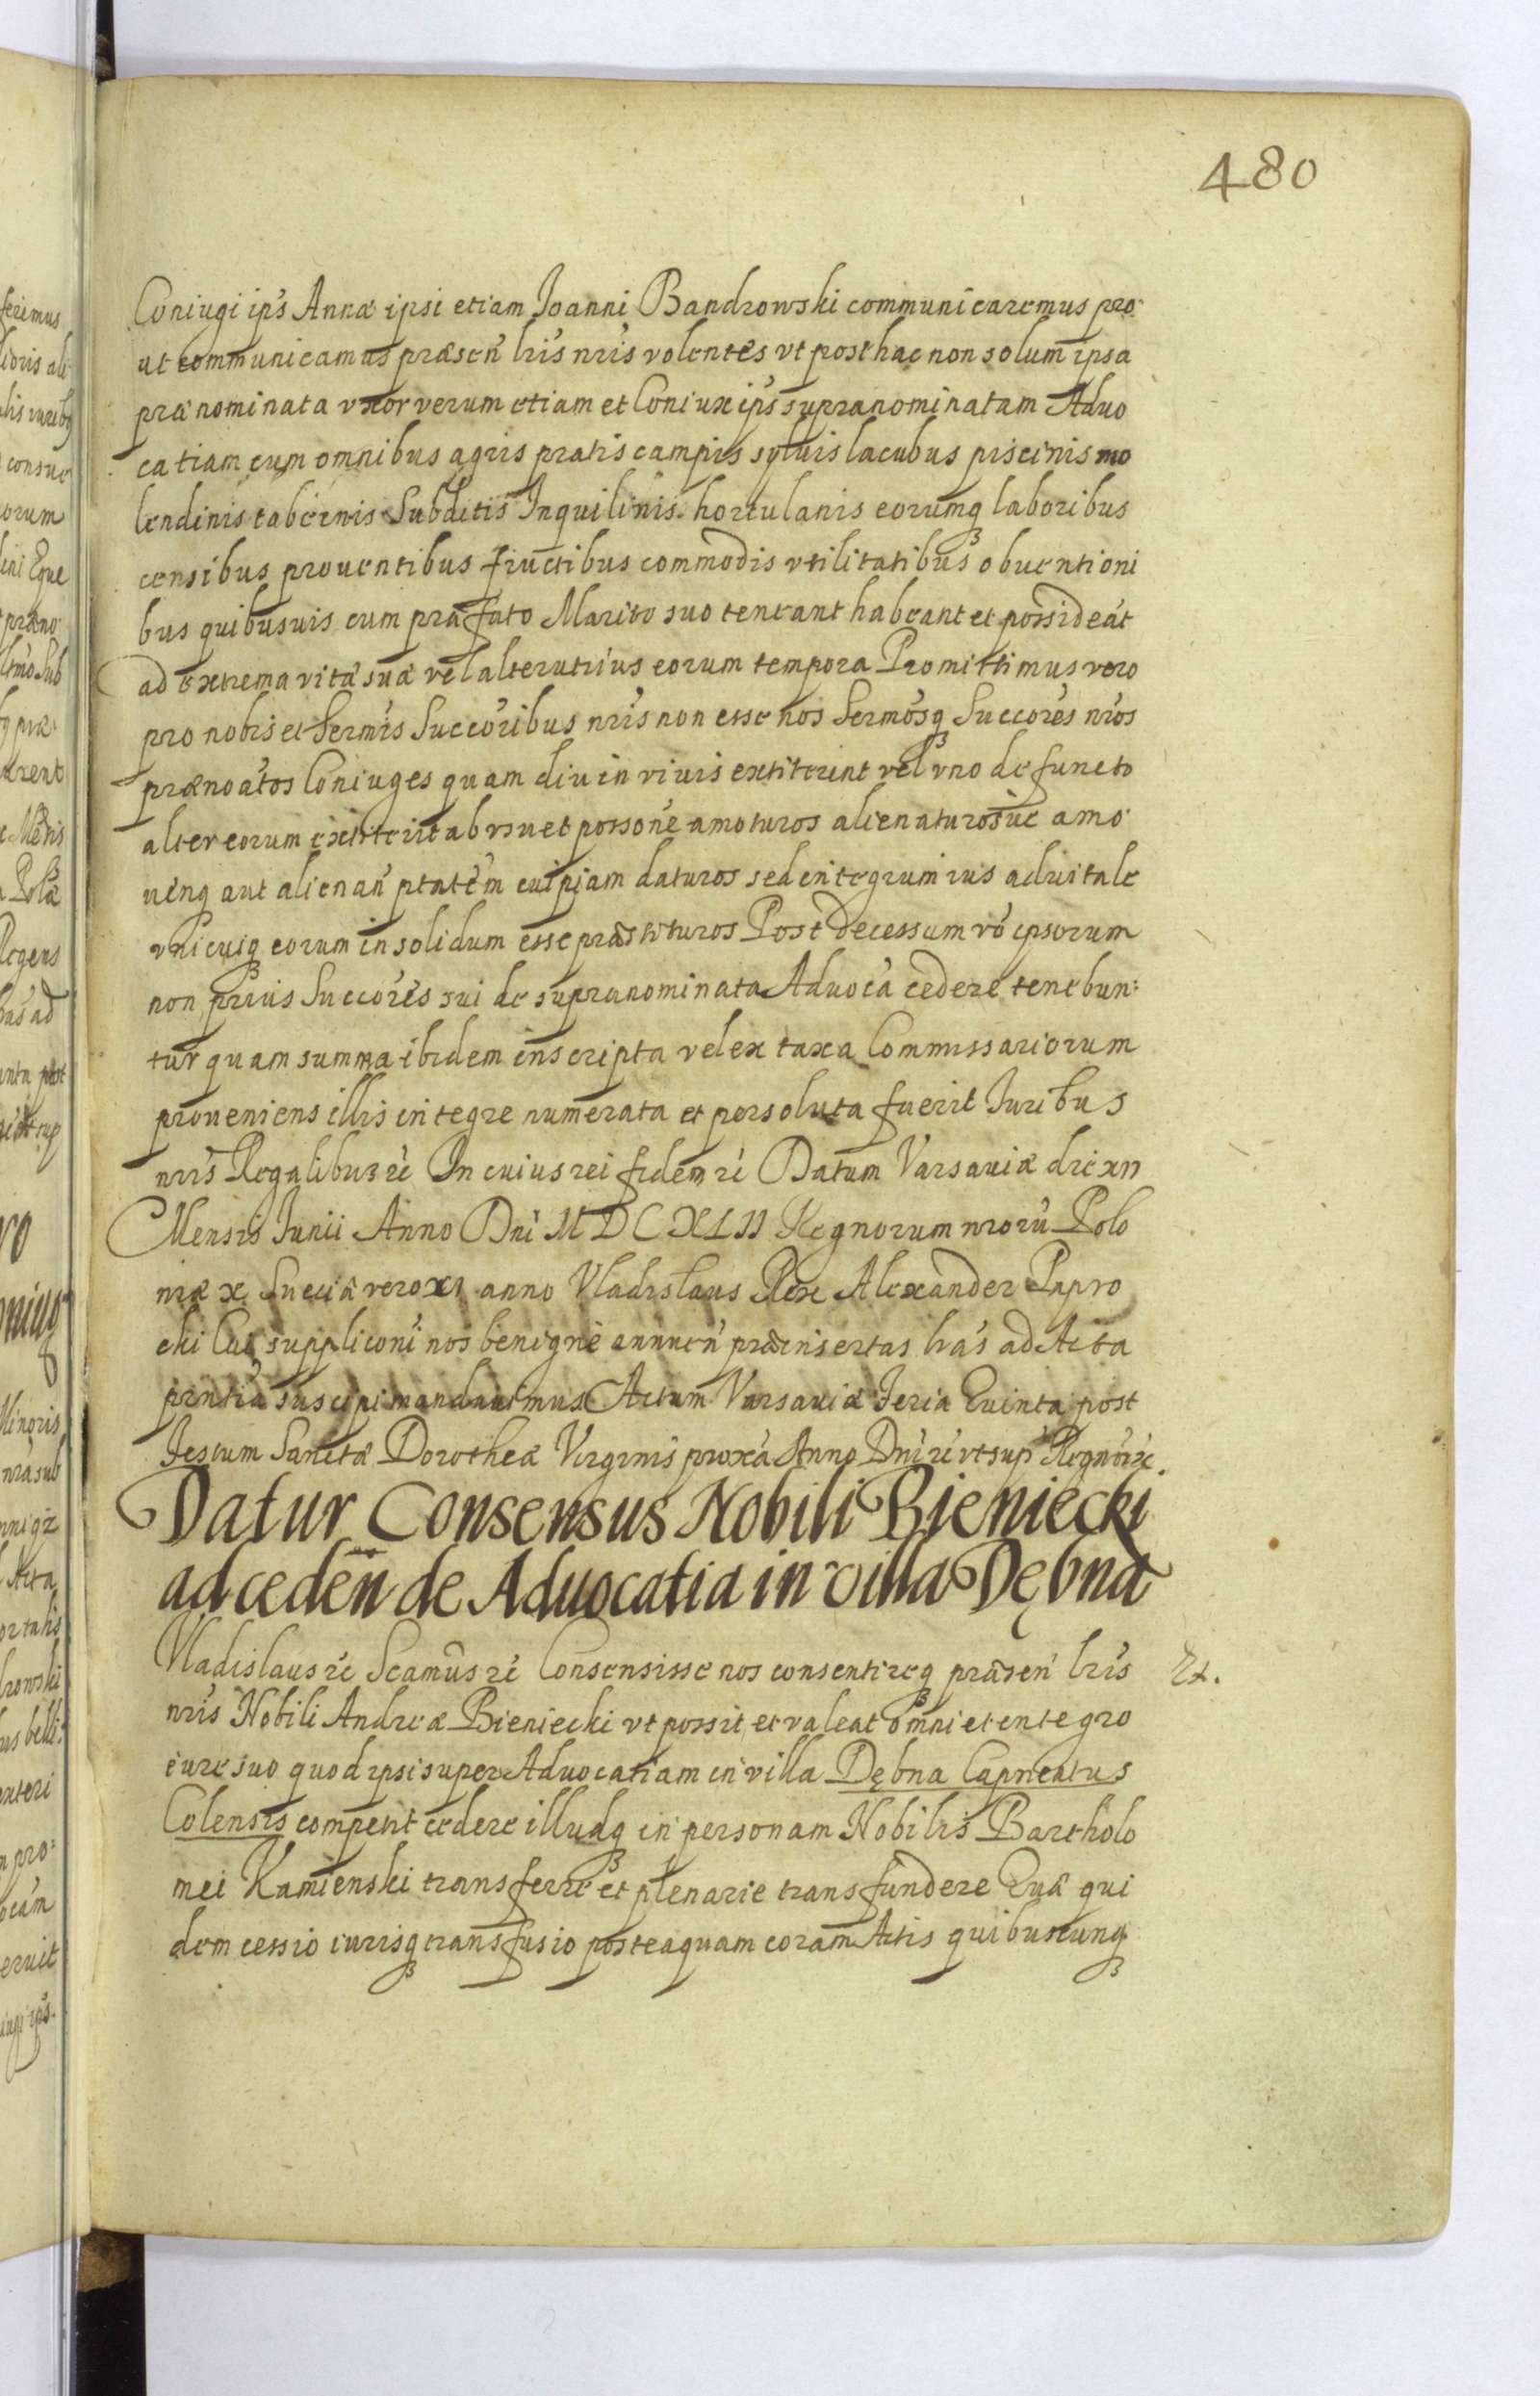 480
Coniugi ips Annæ ipsi etiam Joanni Bandrowski communicaremus pro
ut communicamus præsen lris nris volentes vt posthac non solum ipsa
prænominata vxor verum etiam et Coniux ips supranominatam Aduo
catiam cum omnibus agris pratis campis syluis lacubus piscinis mo
lendinis tabernis Subditis Inquilinis hortulanis eorumq laboribus
censibus prouentibus fructibus commodis vtilitatibus obuentioni
bus quibusuis cum præfato Marito suo teneant habeant et possideat
ad extrema vitæ suæ vel alterutrius eorum tempora Promittimus vero
pro nobis et Sermis Succoribus nris non esse nos Sermosq Succores nros
prænoatos Coniuges quam diu in viuis extiterint vel vno defuncto
alter eorum extiterit ab vsu et possone amoturos alienaturosue amo
uenq aut alienan ptatem cuipiam daturos sed integrum ius aduitale
vnicuiq eorum in solidum esse præstituros Post decessum vo ipsorum
non prius Succores sui de supranominata Aduoca cedere tenebun:
tur quam summa ibidem inscripta vel ex taxa Commissariorum
proueniens illis integre numerata et persoluta fuerit Juribus
nris Regalibus rc In cuius rei fidem rc Datum Varsauiæ die xii
Mensis Junii Anno Dni MDCXLII Regnorum nroru Polo
niæ x Sueciæ vero xi anno Vladislaus Rex Alexander Papro
cki Cui suppliconi nos benigne annuen præinsertas lras ad Acta
prntia suscipi mandauimus Actum Varsauiæ Feria Quinta post
Festum Sanctæ Dorotheæ Virginis proxa Anno Dni rc vt sup Regnor rc.
Datur Consensus Nobili Bieniecki
ad ceden de Aduocatia in villa Dębna
Vladislaus rc Seamus rc Consensisse nos consentireq præsen lris
Ex.
nris Nobili Andreæ Bieniecki vt possit et valeat omni et integro
iure suo quod ipsi super Aduocatiam in villa Dębna Capneatus
Colensis competit cedere illudq in personam Nobilis Bartholo
mei Kamienski transferre et plenarie transfundere Quæ qui
dem cessio iurisq transfusio posteaquam coram Actis quibuscunq